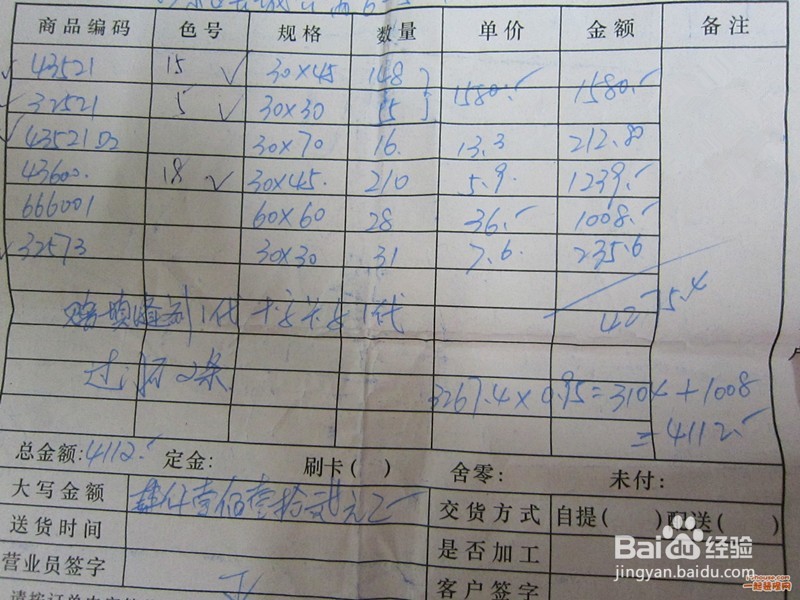 商品编码 色号 规格 数量 单价 金额 备注
43521 15 30×45 148 1580.- 1580.-
32521 5 30×30 55
43521D2 30×70 16. 13.3 212.80
43600. 18 30×45. 210 5.9. 1239.-
666001 60×60 28 36.- 1008.-
32573 30×30 31 7.6. 235.6
4275.4
填缝剂1代 1代
过门石2条
3267.4×0.95=3104+1008
=4112.-
总金额:4112.- 定金: 刷卡( ) 舍零: 未付:
大写金额 肆仟壹佰壹拾贰元正 交货方式 自提( ) 配送( )
送货时间 是否加工
营业员签字 客户签字
Bai 经验
jingyan.baidu.com